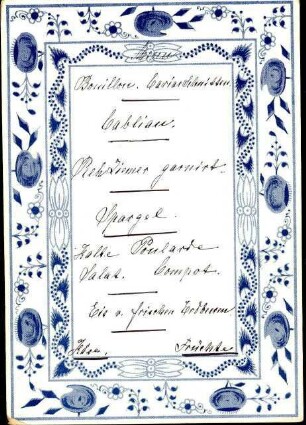 Menu
Bouillon. Caviarschnitten
Cabliau.
Rehzimmer garnirt.
Spargel.
Kalte Poularde
Salat. Compot.
Eis v. frischen Erdbeeren
Käse. Früchte